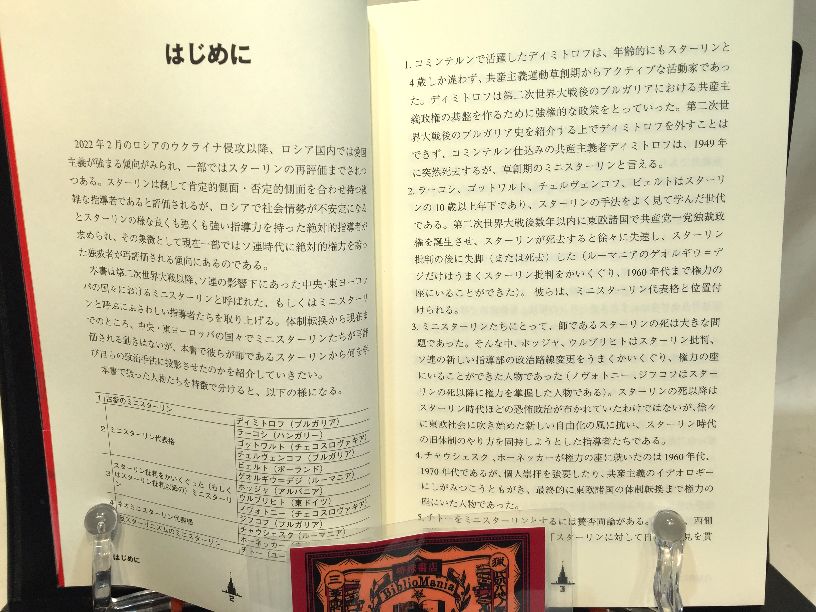 はじめに
2022年2月のロシアのウクライナ侵攻以降、ロシア国内では愛国
主義が強まる傾向がみられ、一部ではスターリンの再評価までされつ
つある。スターリンは概して肯定的側面・否定的側面を合わせ持つ複
雑な指導者であると評価されるが、ロシアで社会情勢が不安定になる
とスターリンの様な良くも悪くも強い指導力を持った絶対的指導者が
求められ、その象徴として現在一部ではソ連時代に絶対的権力を奮っ
た独裁者が再評価される傾向にあるのである。
本書は第二次世界大戦以降、ソ連の影響下にあった中央・東ヨーロッ
パの国々におけるミニスターリンと呼ばれた、もしくはミニスターリ
ンと呼ぶにふさわしい指導者たちを取り上げる。体制転換から現在ま
でのところ、中央・東ヨーロッパの国々でミニスターリンたちが再評
価される動きはないが、本書で彼らが師であるスターリンから何を学
び自らの政治手法に投影させたのかを紹介していきたい。
本書で扱った人物たちを特徴で分けると、以下の様になる。
1
ミニスターリン
ディミトロフ（ブルガリア）
2
ミニスターリン代表格
ラーコシ（ハンガリー）
ゴットワルト（チェコスロヴァキア）
チェルヴェンコフ（ブルガリア）
ビェルト（ポーランド）
ゲオルギウ＝デジ（ルーマニア）
3
スターリン批判をかいくぐった（もしく
はスターリン批判以後の）ミニスターリン
ホッジャ（アルバニア）
ウルブリヒト（東ドイツ）
ノヴォトニー（チェコスロヴァキア）
ジフコフ（ブルガリア）
ミニスターリン
はじめに
2
1. コミンテルンで活躍したディミトロフは、年齢的にもスターリンと
4歳しか違わず、共産主義運動草創期からアクティブな活動家であっ
た。ディミトロフは第二次世界大戦後のブルガリアにおける共産主
義政権の基盤を作るために強権的な政策をとっていった。第二次世
界大戦後のブルガリア史を紹介する上でディミトロフを外すことは
できず、コミンテルン仕込みの共産主義者ディミトロフは、1949年
に突然死去するが、草創期のミニスターリンと言える。
2. ラーコシ、ゴットワルト、チェルヴェンコフ、ビェルトはスターリ
ンの10歳以上年下であり、スターリンの手法をよく見て学んだ世代
である。第二次世界大戦後数年以内に東欧諸国で共産党一党独裁政
権を誕生させ、スターリンが死去すると徐々に失速し、スターリン
批判の後に失脚（または死去）した（ルーマニアのゲオルギウ＝デ
ジだけはうまくスターリン批判をかいくぐり、1960年代まで権力の
座にいることができた）。彼らは、ミニスターリン代表格と位置付
けられる。
3. ミニスターリンたちにとって、師であるスターリンの死は大きな問
題であった。そんな中、ホッジャ、ウルブリヒトはスターリン批判、
ソ連の新しい指導部の政治路線変更をうまくかいくぐり、権力の座
にいることができた人物であった（ノヴォトニー、ジフコフはスター
リンの死以降に権力を掌握した人物である）。スターリンの死以降は
スターリン時代ほどの恐怖政治が布かれていたわけではないが、徐々
に東欧社会に吹き始めた新しい自由化の風に抗い、スターリン時代
の旧体制のやり方を固持しようとした指導者たちである。
4. チャウシェスク、ホーネッカーが権力の座に就いたのは1960年代、
1970年代であるが、個人崇拝を強要したり、共産主義のイデオロギー
にしがみつこうともがき、最終的に東欧諸国の体制転換まで権力の
座にいた人物であった。
5. チトーをミニスターリンとするには賛否両論がある。
「スターリンに対して
3
書店
BiblioMania